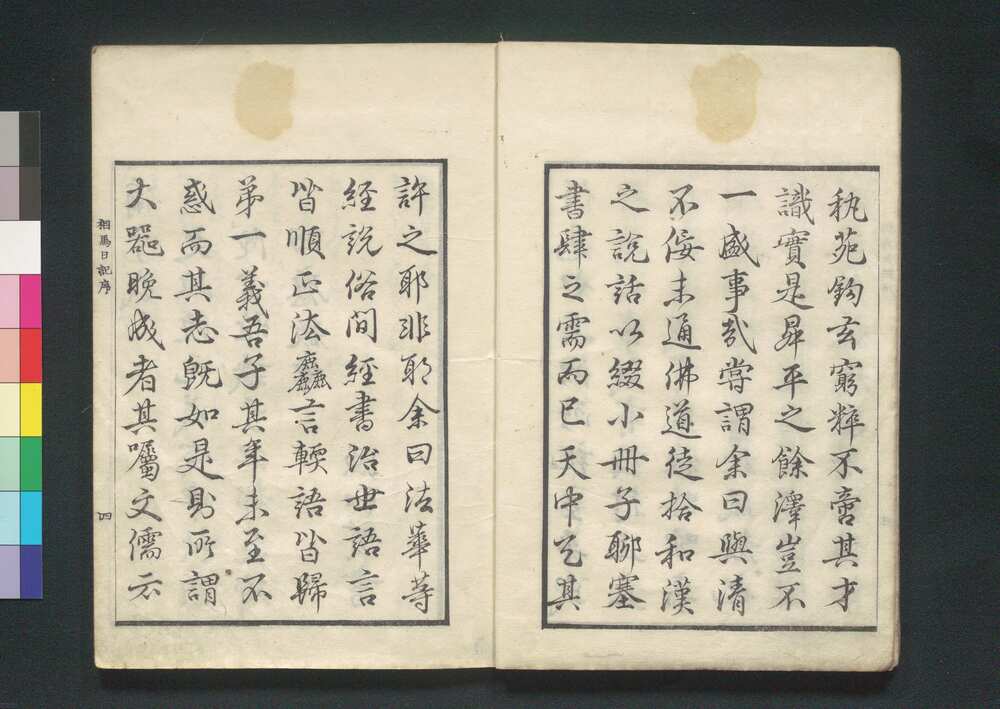 執苑鈎玄窮粋不啻其才
識實是昇平之餘澤豈不
一盛事哉嘗謂余曰與清
不侫未通佛道徒拾和漢
之說話以綴小冊子聊塞
書肆之需而已天中乞其
許之耶非耶余曰法華等
経說俗間經書治世語言
皆順正法麤言輭語皆歸
第一義吾子其年未至不
惑而其志既如是則所謂
大器晚成者其囑文儒云
相馬日記序
四